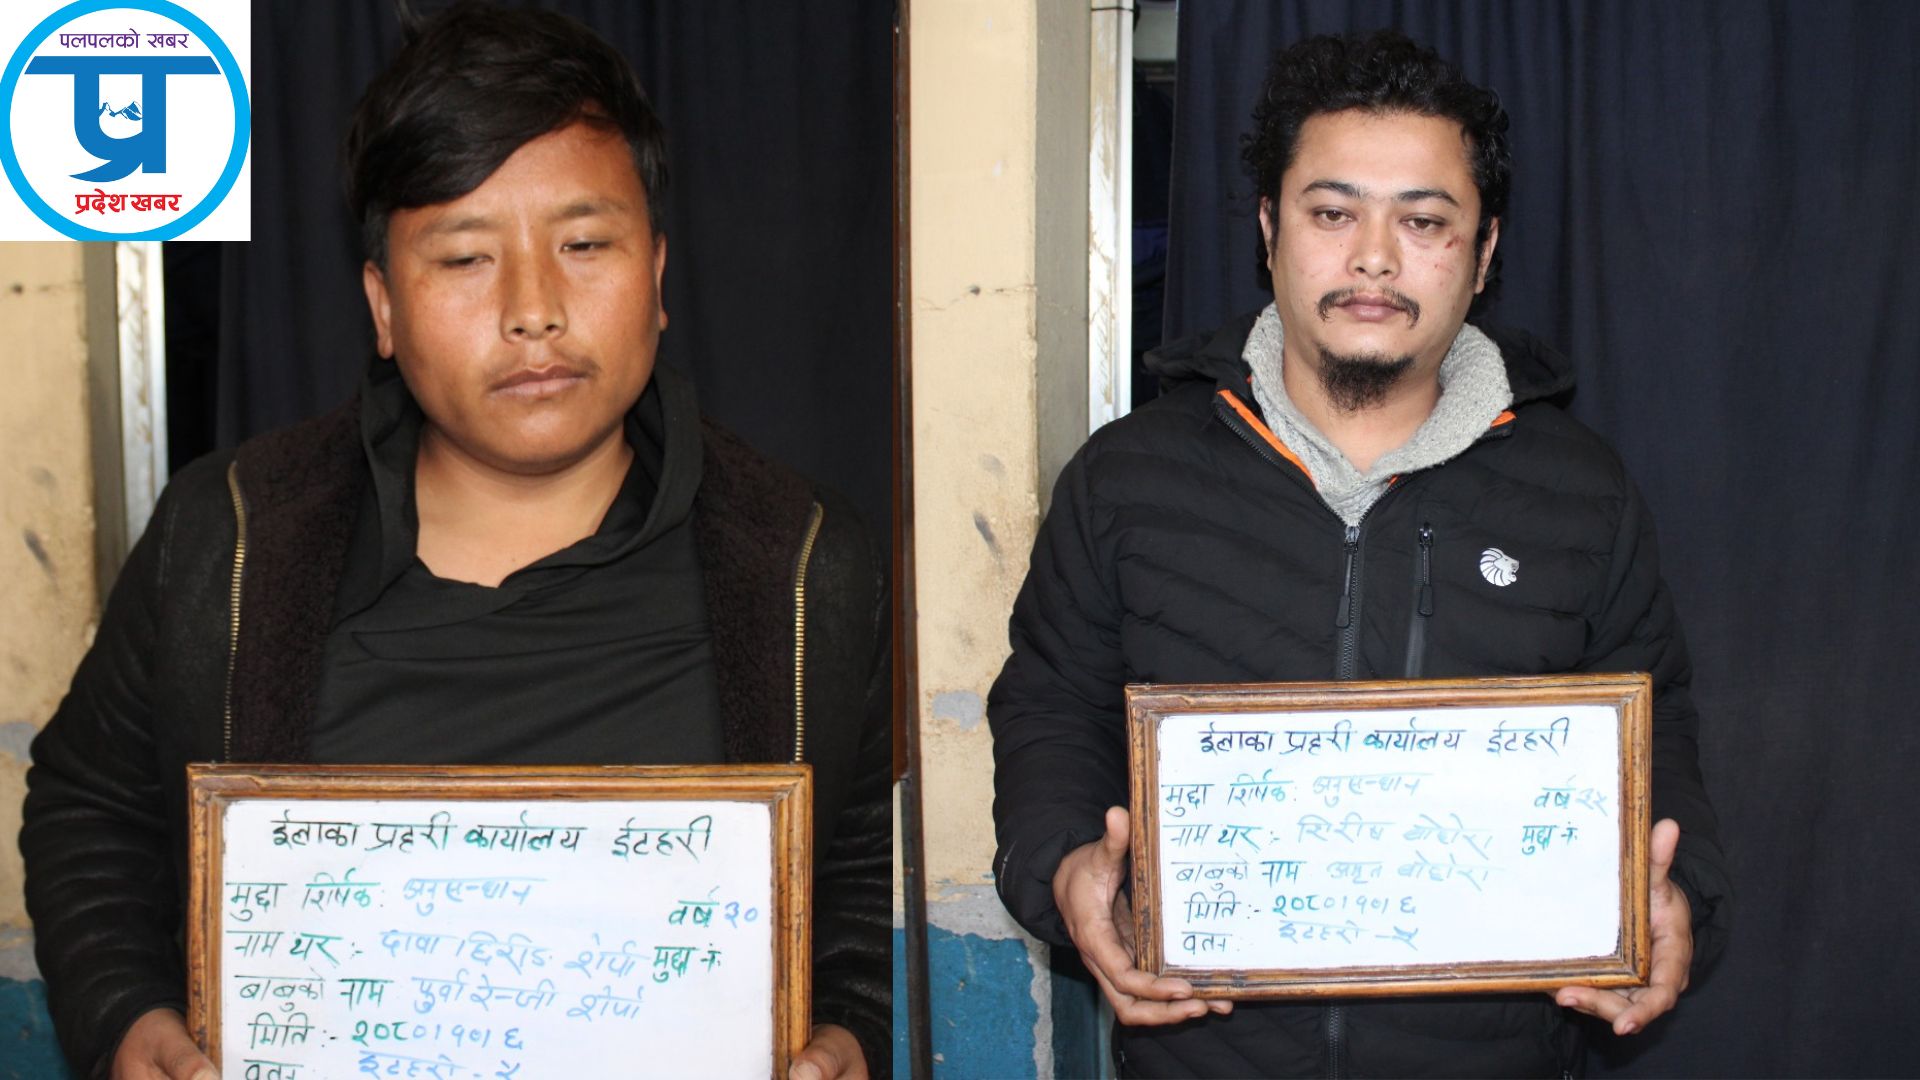 पलपलको खबर
प्र
प्रदेश खबर
ईलाका प्रहरी कार्यालय ईटहरी
मुद्दा शिर्षक: अनुसन्धान
वर्ष ३०
नाम थर :- दावा छिरीङ शेर्पा मुद्दा नं:
बाबुको नाम पुर्वा रेन्जी शेर्पा
मिति :- २०८०।१०।६
वतन ईटहरी - २
ईलाका प्रहरी कार्यालय ईटहरी
मुद्दा शिर्षक: अनुसन्धान
वर्ष
नाम थर :- सिरीष बोहोरा मुद्दा नं:
बाबुको नाम अमृत बोहोरा
मिति :- २०८०।१०।६
वतन: ईटहरी